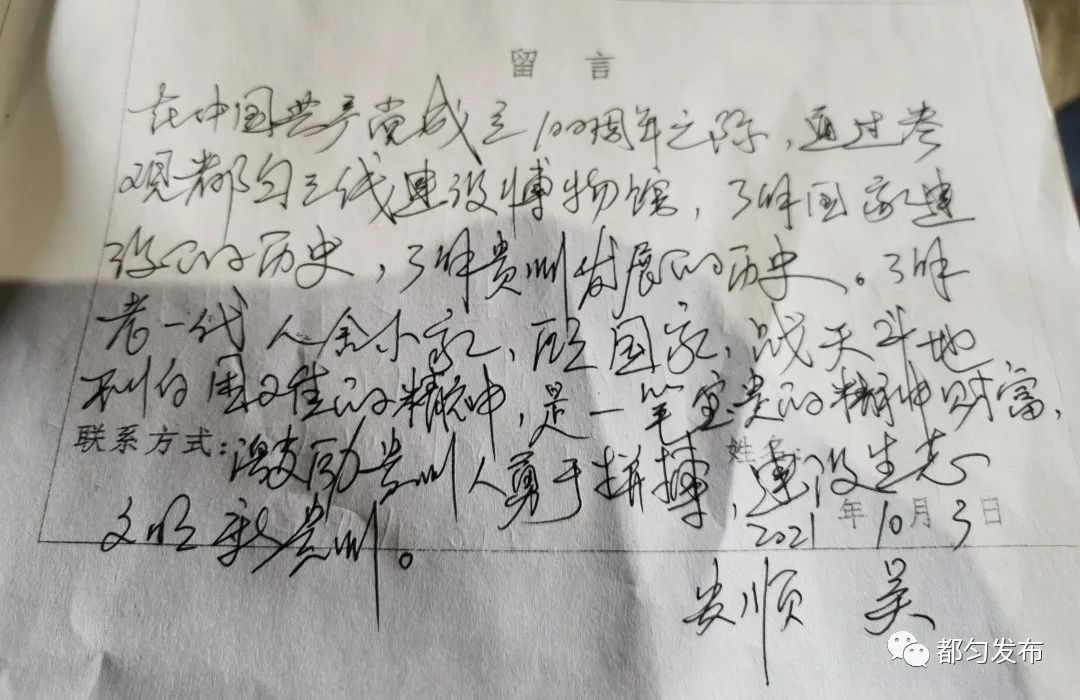 留 言
在中国共产党成立100周年之际，通过参
观都匀三线建设博物馆，了解国家建
设的历史，了解贵州发展的历史。了解
老一代人舍小家、顾国家，战天斗地
不怕困难的精神，是一笔宝贵的精神财富，
联系方式：
姓名：
激励贵州人勇于拼搏，建设生态
文明新贵州。
2021年10月3日
安顺 吴
都匀发布